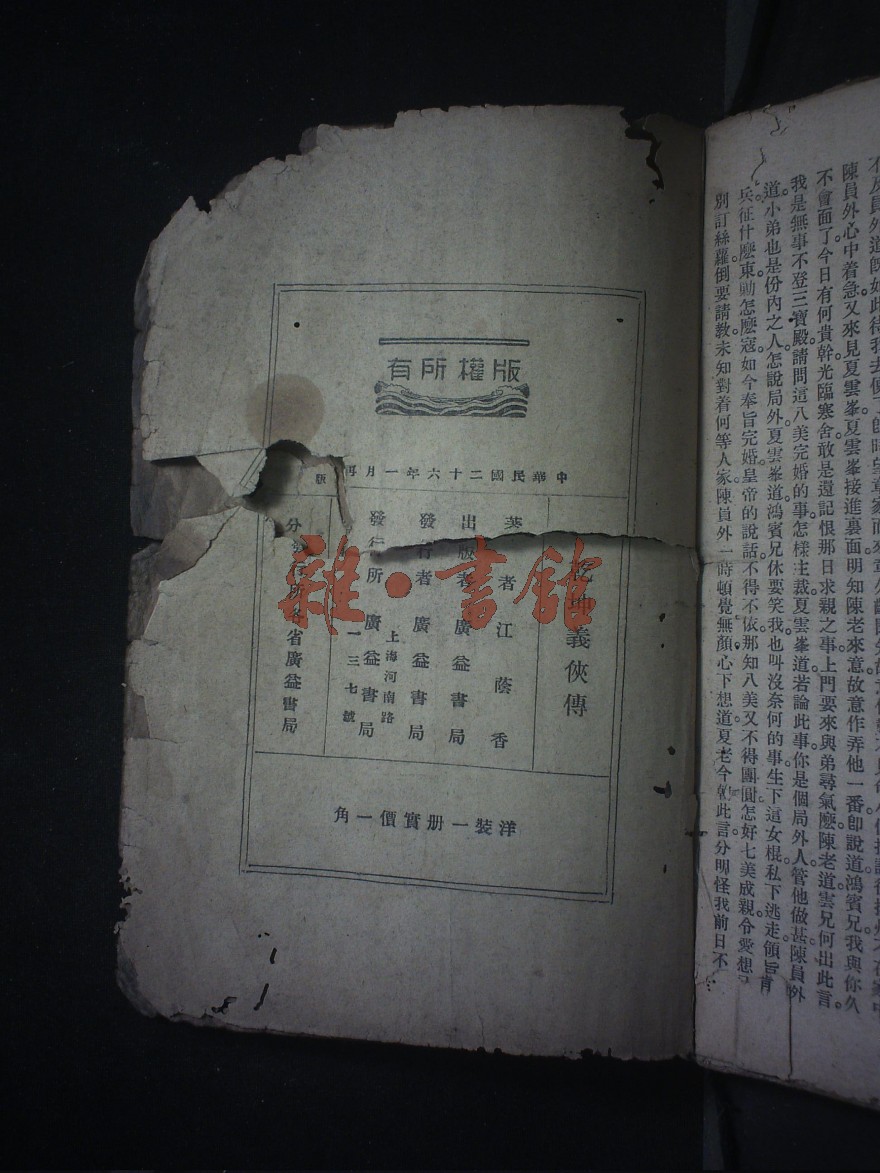 不會面了今日有何貴幹光臨寒舍敢是還記恨那日求親之事上門要來與弟尋氣麽陳老道雲兄何出此言。
我是無事不登三寶殿請問這八美完婚的事怎樣主裁夏雲峯道若論此事你是個局外人管他做甚陳員外
道小弟也是份內之人怎說局外夏雲峯道鴻賓兄休要笑我也叫沒奈何的事生下這女棍私下逃走領旨
兵征什麽東勦怎麽寇如今奉旨完婚皇帝的說話不得不依那知八美又不得團圓怎好七美成親令愛想
別訂絲蘿倒要請教未知對着何等人家陳員外一時頓覺無顏心下想道夏老今此言分明怪我前日不
版權所有
中華民國二十六年一月再版
乾坤義俠傳
者江蔭香
出版者廣益書局
發行者廣益書局
發行所廣益書局
上海河南路
一三七號
分發行所各省廣益書局
洋裝一册實價一角
雜·書館